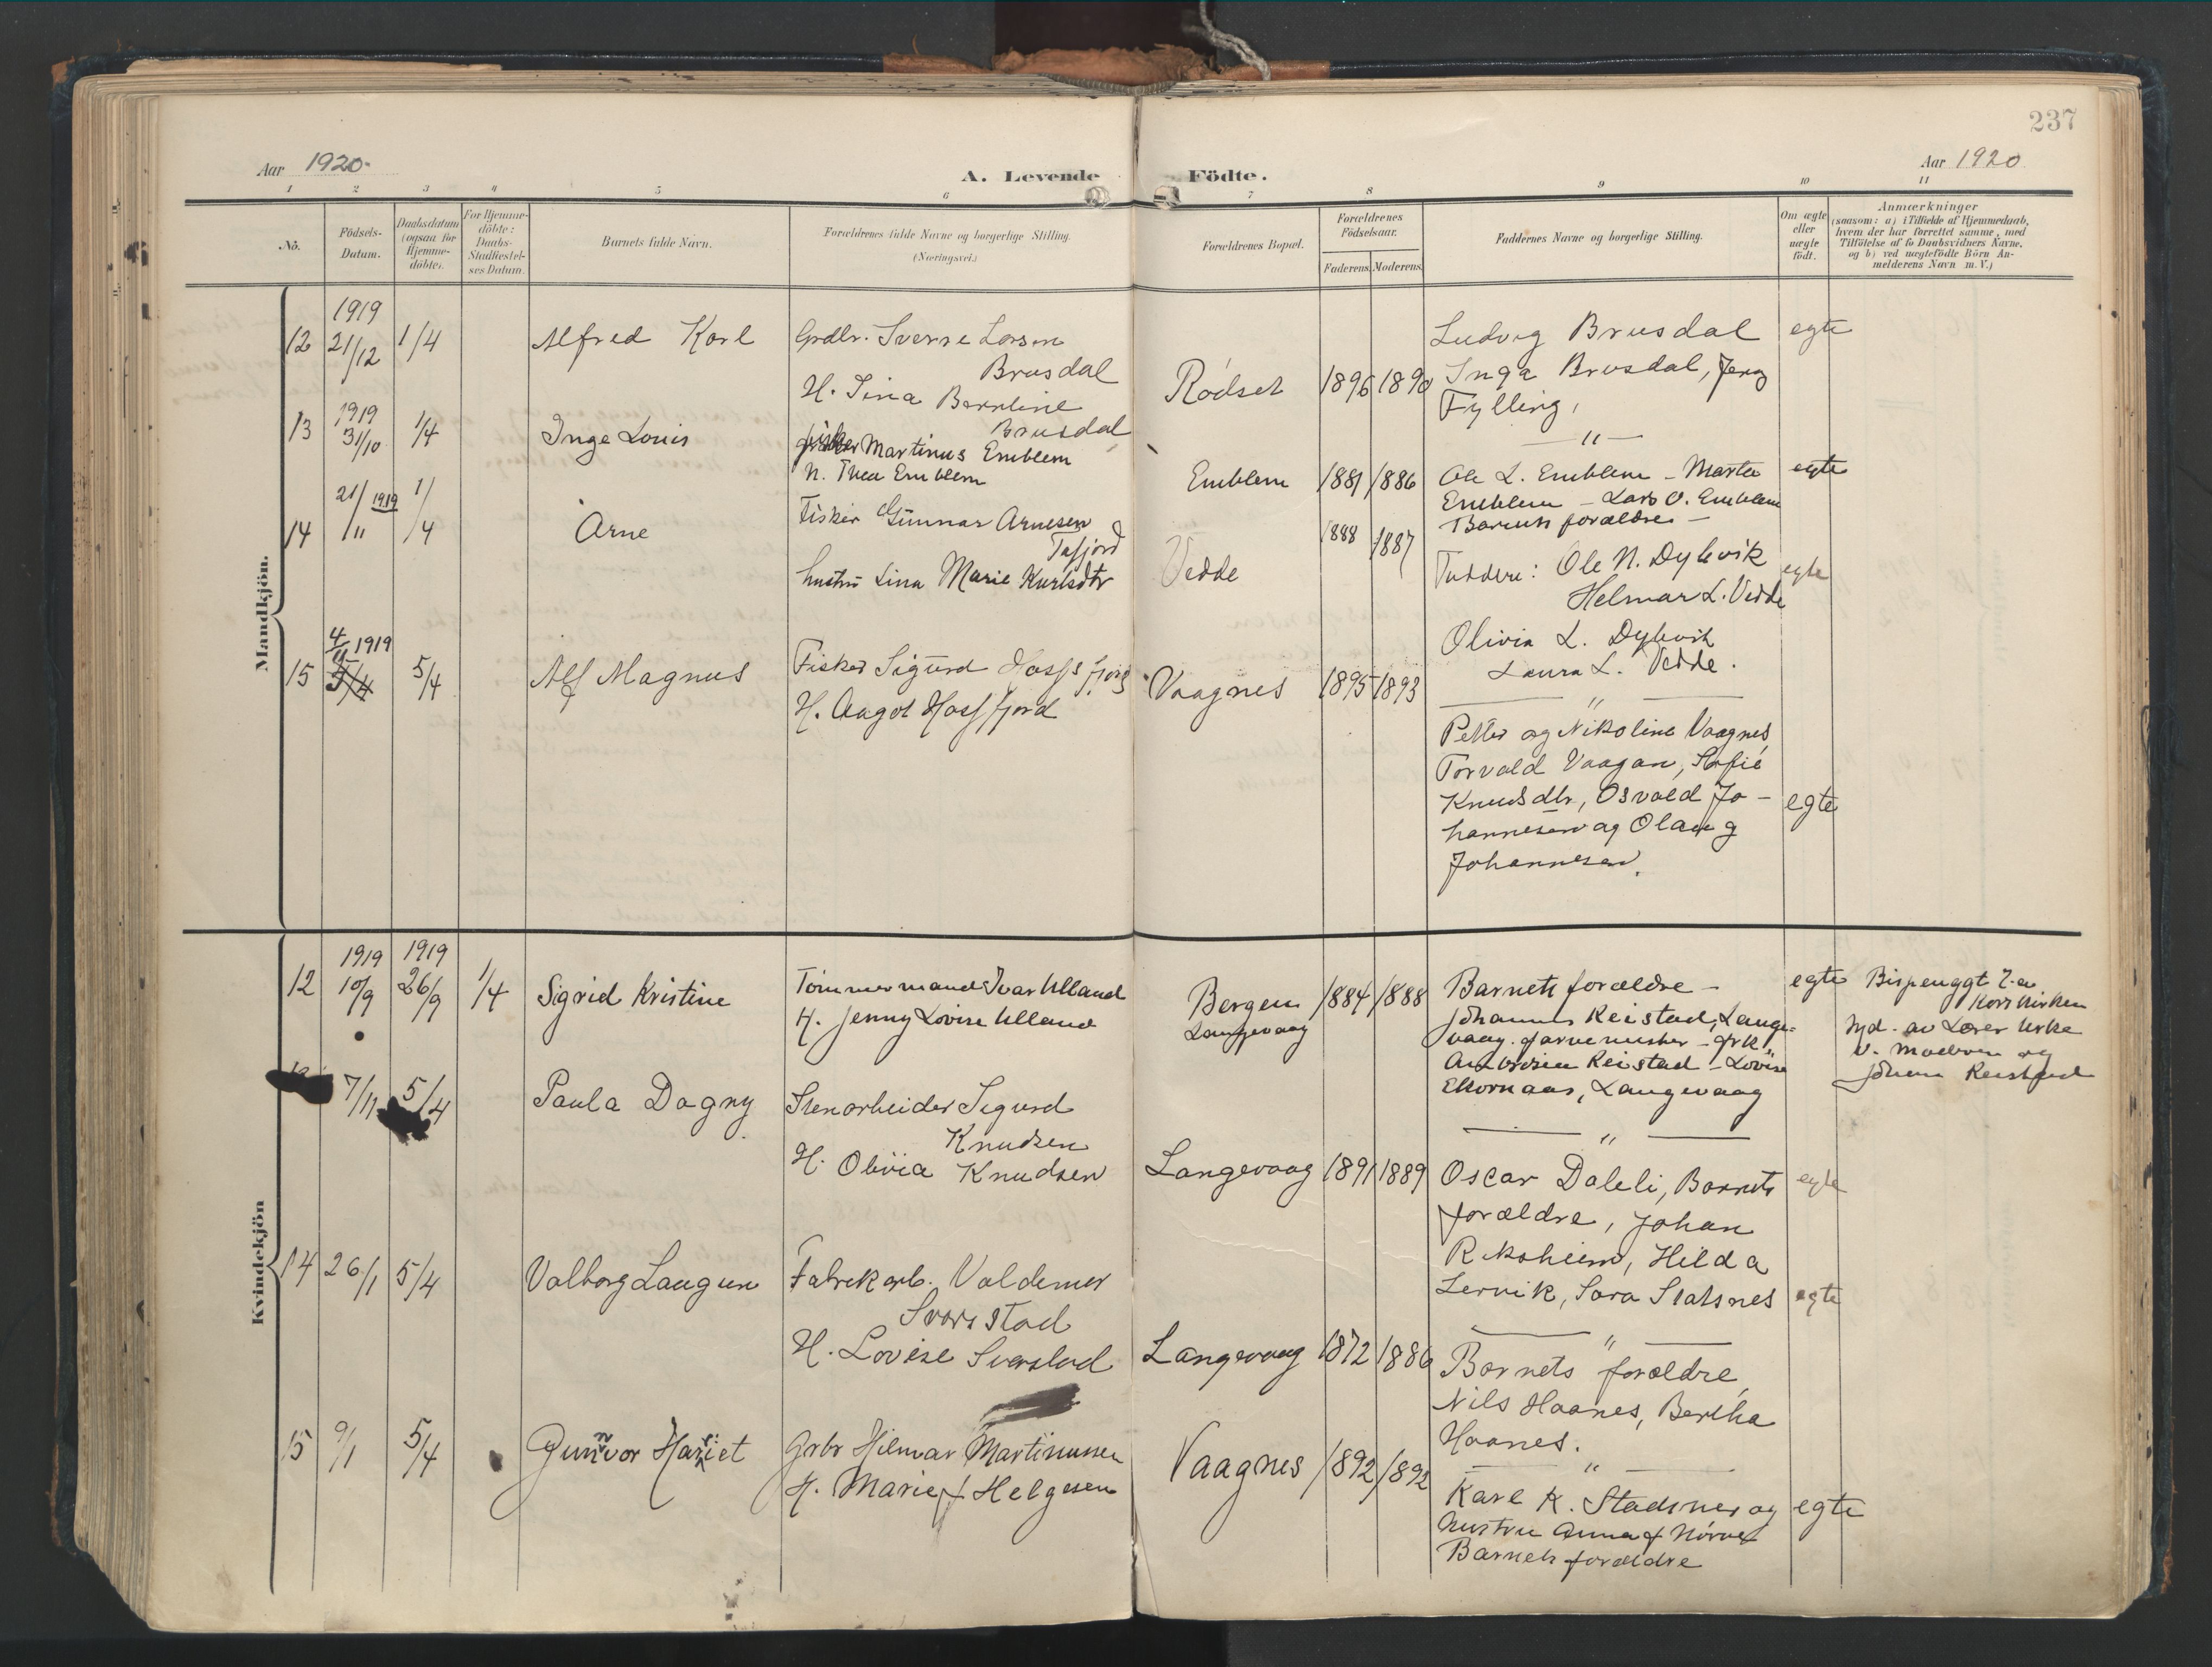 237
Aar 1920.
A. Levende Födte.
Aar 1920
1 2 3 4 5 6 7 8 9 10 11
No.
Födsels-
Datum.
Daabsdatum
(ogsaa for
Hjemme-
döbte).
For Hjemme-
döbte:
Daabs-
Stadfæstel-
ses Datum.
Barnets fulde Navn.
Forældrenes fulde Navne og borgerlige Stilling.
(Næringsvei.)
Forældrenes Bopæl.
Forældrenes
Födselsaar.
Faderens. Moderens.
Faddernes Navne og borgerlige Stilling.
Om ægte
eller
uægte
födt.
Anmærkninger
(saasom: a) i Tilfælde af Hjemmedaab,
hvem der har forrettet samme, med
Tilföielse af to Daabsvidners Navne,
og b) ved uægtefödte Börn An-
melderens Navn m. V.)
Mandkjön.
12
1919
21/12
1/4
Alfred Karl
Grdbr. Sverre Larsen
Brusdal
H. Sina Berntine
Brusdal
Rödset
1896 1890
Ludvig Brusdal
Inga Brusdal, Jeng
Fylling,
— " —
egte
13
1919
31/10
1/4
Inge Louis
fisker Martinus Emblem
H. Thea Emblem
Emblem
1881 1886
Ole L. Emblem - Marta
Emblem - Lars O. Emblem
Barnets forældre -
egte
14
21/11 1919
1/4
Arne
Fisker Gunnar Arnesen
Tafjord
hustru Lina Marie Karlsdtr
Vedde
1888 1887
Faddere: Ole N. Dybvik
Helmar L. Vedde
Olivia L. Dybvik
Laura L. Vedde.
— " —
egte
15
4/11 1919
5/4
5/4
Alf Magnus
Fisker Sigurd Hassfjord
H. Aagot Hassfjord
Vaagnes
1895 1893
Petter og Nikoline Vaagnes,
Torvald Vaagan, Sofie
Knudsdtr, Osvald Jo-
hannesen og Olaug
Johannesen.
egte
Kvindekjön
12
1919
10/9
1919
26/9
1/4
Sigrid Kristine
Tömmermand Ivar Ulland
H. Jenny Lovise Ulland
Bergen
Langevaag
1884 1888
Barnets forældre -
Johannes Reistad, Lange-
vaag. farvemester - frk.
Reistad - Lovise
Ekornaas, Langevaag
— " —
egte
Korskirken
av Lærer Urke
og
Johan Reistad
7/11
5/4
Paula Dagny
Stenarbeider Sigurd
Knudsen
H. Olivia Knudsen
Langevaag
1891 1889
Oscar Daleli, Barnets
forældre, Johan
Riksheim, Hilda
Lervik, Sara Statsnes
— " —
egte
14
26/1
5/4
Valborg Laugun
Fabrikarb. Valdemar
Svorstad
H. Lovise Svorstad
Langevaag
1872 1886
Barnets forældre,
Nils Haanes, Bertha
Haanes.
— " —
egte
15
9/1
5/4
Gunnvor Hariet
Grbr Hilmar Martinussen
H. Marie f Helgesen
Vaagnes
1892 1892
Karl K. Stadsnes og
hustru Anna f Nörve
Barnets forældre
egte